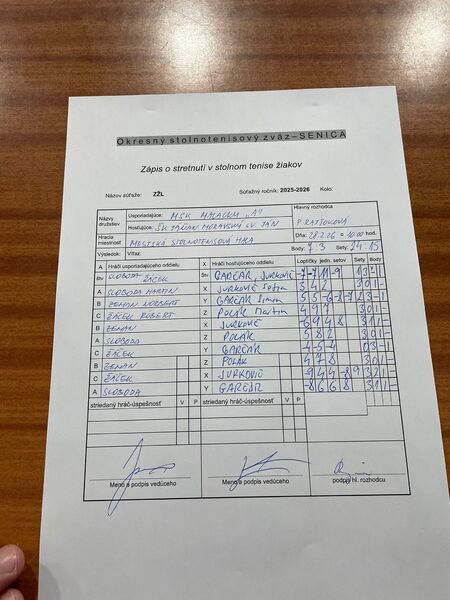 Okresný stolnotenisový zväz – SENICA
Zápis o stretnutí v stolnom tenise žiakov
Názov súťaže: ZŽL Súťažný ročník: 2025-2026 Kolo:
Názov družstiev Usporiadajúce: MSK MALACKY "A" Hlavný rozhodca
Hosťujúce: ŠK MORAVSKÝ SV. JÁN P. RAJTOKOVÁ
Hracia miestnosť MESTSKÁ STOLNOTENISOVÁ HALA Dňa: 28.2.26 o 10:00 hod.
Výsledok: Víťaz: Body: 7:3 Sety: 24:15
Hráči usporiadajúceho oddielu Hráči hosťujúceho oddielu Loptičky jedn. setov Sety Body
štv SLOBODA ŽÁČEK štv GARČÁR, JURKOVIČ -7 -7 11 -9 1 3 - 1
A SLOBODA MARTIN X JURKOVIČ 3 4 2 3 0 1 -
B ZEMAN NORBERT Y GARČÁR Šimon 5 5 -6 -8 -7 2 3 - 1
C ŽÁČEK RÓBERT Z POLÁK Martin 4 9 7 3 0 1 -
B ZEMAN X JURKOVIČ -6 9 4 8 3 1 1 -
A SLOBODA Z POLÁK 5 8 2 3 0 1 -
C ŽÁČEK Y GARČÁR -4 -5 -4 0 3 - 1
B ZEMAN Z POLÁK 4 7 8 3 0 1 -
C ŽÁČEK X JURKOVIČ -9 4 4 -8 9 3 2 1 -
A SLOBODA Y GARČÁR -8 6 6 8 3 1 1 -
striedaný hráč-úspešnosť V P striedaný hráč-úspešnosť V P
Meno a podpis vedúceho Meno a podpis vedúceho podpis hl. rozhodcu